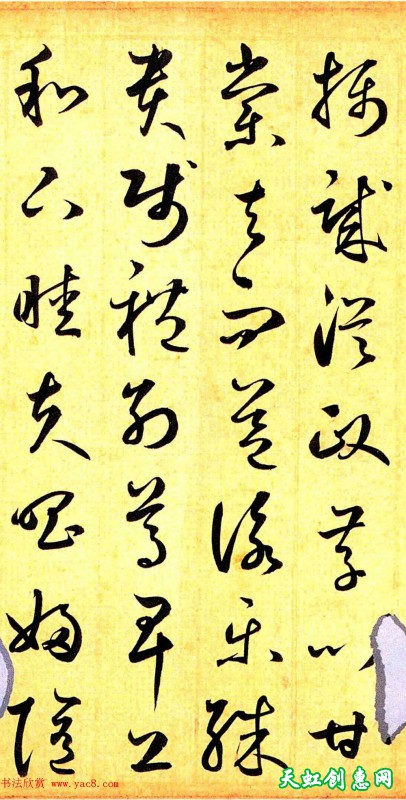 攝職從政存以甘
棠去而益詠樂殊
貴賤禮別尊卑上
和下睦夫唱婦隨
书法欣赏 www.yac8.com
天虹创惠网